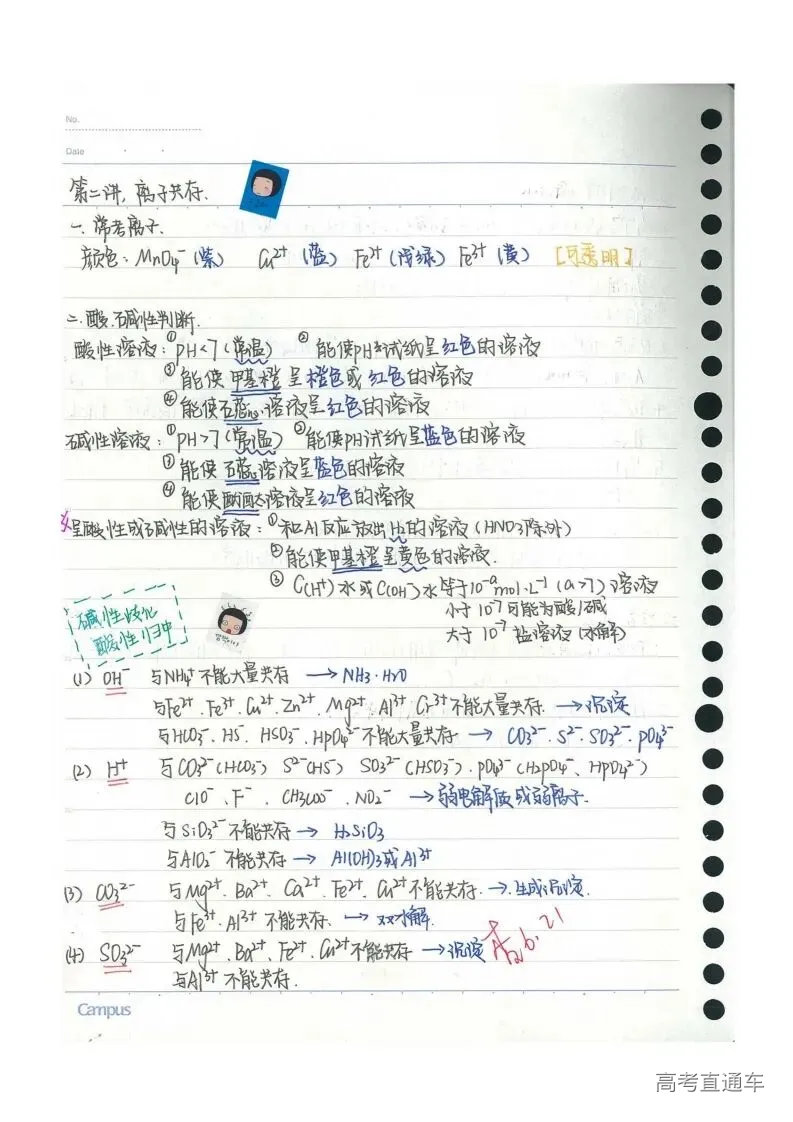 No.
Date
第二讲. 离子共存.
一. 常考离子.
颜色: MnO₄⁻ (紫) Cu²⁺ (蓝) Fe²⁺ (浅绿) Fe³⁺ (黄) [可透明]
二. 酸. 碱性判断.
酸性溶液: ① pH<7 (常温) ② 能使pH试纸呈红色的溶液
③ 能使甲基橙呈橙色或红色的溶液
④ 能使石蕊溶液呈红色的溶液
碱性溶液: ① pH>7 (常温) ② 能使pH试纸呈蓝色的溶液
③ 能使石蕊溶液呈蓝色的溶液
④ 能使酚酞溶液呈红色的溶液
呈酸性或碱性的溶液: ① 和Al反应放出H₂的溶液 (HNO₃除外)
② 能使甲基橙呈黄色的溶液.
③ C(H⁺)水或C(OH⁻)水等于10⁻ᵃ mol·L⁻¹ (a>7) 溶液
小于10⁻⁷可能为酸/碱
大于10⁻⁷ 盐溶液 (水解)
碱性歧化
酸性归中
(1) OH⁻ 与NH₄⁺不能大量共存 → NH₃·H₂O
与Fe²⁺. Fe³⁺. Cu²⁺. Zn²⁺. Mg²⁺. Al³⁺. Cr³⁺不能大量共存. → 沉淀
与HCO₃⁻. HS⁻. HSO₃⁻. HPO₄²⁻不能大量共存 → CO₃²⁻. S²⁻. SO₃²⁻. PO₄³⁻
(2) H⁺ 与CO₃²⁻(HCO₃⁻) S²⁻(HS⁻) SO₃²⁻(HSO₃⁻). PO₄³⁻(H₂PO₄⁻、HPO₄²⁻)
ClO⁻、F⁻、CH₃COO⁻、NO₂⁻ → 弱电解质或弱离子.
与SiO₃²⁻不能共存 → H₂SiO₃
与AlO₂⁻不能共存 → Al(OH)₃或Al³⁺
(3) CO₃²⁻ 与Mg²⁺. Ba²⁺. Ca²⁺. Fe²⁺. Cu²⁺不能共存. → 生成沉淀.
与Fe³⁺. Al³⁺不能共存. → xx水解.
(4) SO₃²⁻ 与Mg²⁺. Ba²⁺. Fe²⁺. Cu²⁺不能共存 → 沉淀
与Al³⁺不能共存.
6.21
Campus
高考直通车